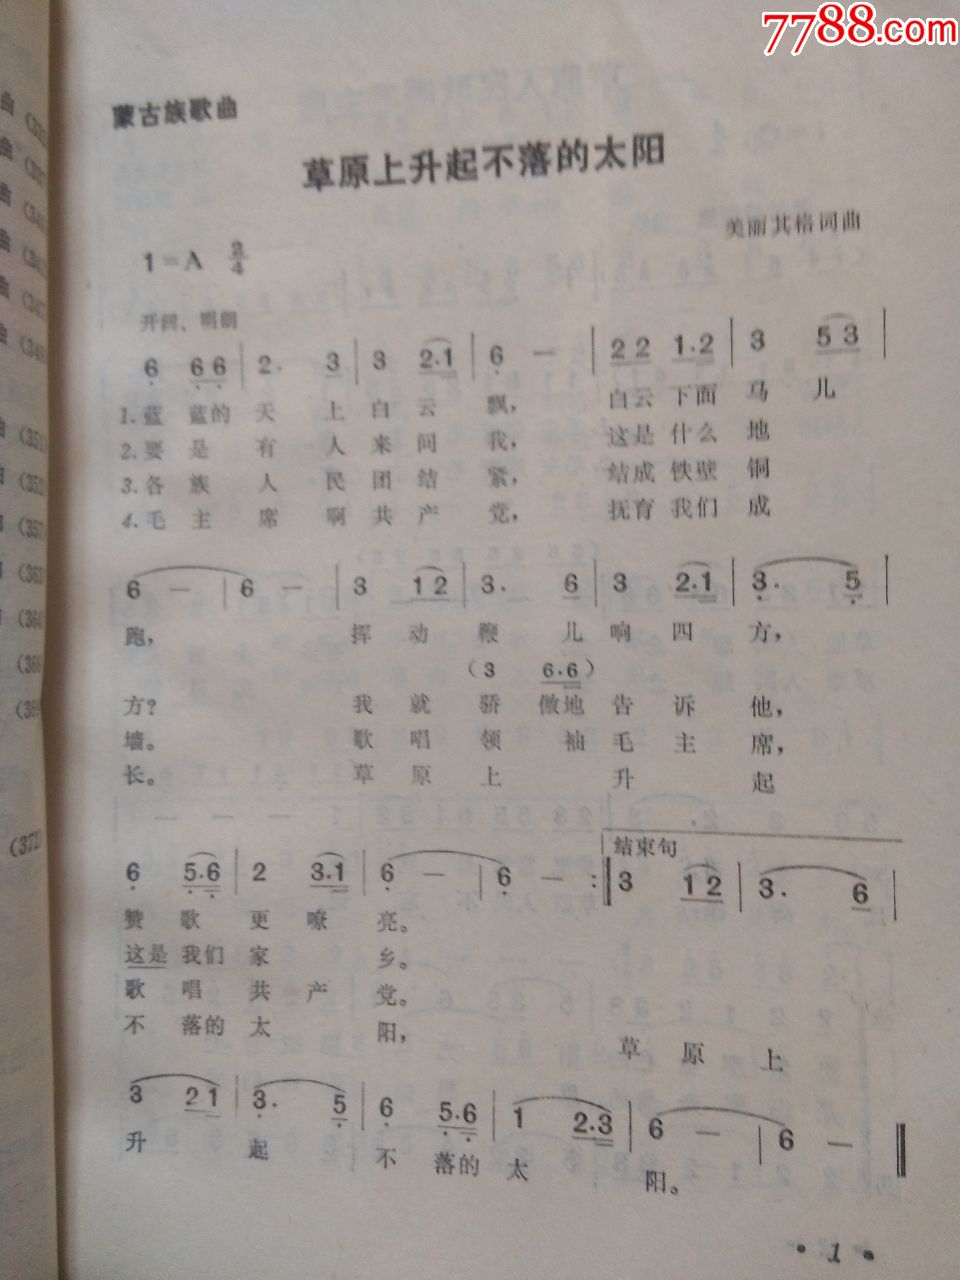 7788.com
蒙古族歌曲
草原上升起不落的太阳
美丽其格词曲
1=A 2/4
开阔、明朗
6 6 6 | 2. 3 | 3 2.1 | 6 — | 2 2 1.2 | 3 5 3 |
1.蓝 蓝的 天 上 白 云 飘, 白云 下面 马 儿
2.要 是 有 人 来 问 我, 这是 什么 地
3.各 族 人 民 团 结 紧, 结成 铁壁 铜
4.毛 主 席 啊 共 产 党, 抚育 我们 成
6 — | 6 — | 3 1 2 | 3. 6 | 3 2.1 | 3. 5 |
跑, 挥 动 鞭 儿 响 四 方,
(3 6.6)
方? 我 就 骄 傲地 告 诉 他,
墙。 歌 唱 领 袖 毛 主 席,
长。 草 原 上 升 起
结束句
6 5.6 | 2 3.1 | 6 — | 6 — :‖ 3 1 2 | 3. 6 |
赞 歌 更 嘹 亮。
这是 我们 家 乡。
歌 唱 共 产 党。
不 落的 太 阳,
草 原 上
3 2 1 | 3. 5 | 6 5.6 | 1 2.3 | 6 — | 6 — ‖
升 起 不 落的 太 阳。
• 1 •
曲
曲
曲
曲
曲
曲
(347
(351)
(352)
(357
(363)
(364)
(366
(372)